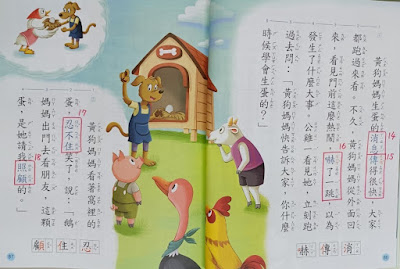 黃狗媽媽生蛋的消息傳得很快,大家
都跑過來看。不久,黃狗媽媽從外面回
來,看見門前這麼熱鬧,嚇了一跳,以為
發生了什麼大事。公雞看見她,立刻跑
過去問:「黃狗媽媽快告訴大家,你什麼
時候學會生蛋的?」
14
15
16
嚇
傳
消
黃狗媽媽看著窩裡的
蛋,忍不住笑了,說:「鵝
媽媽出門去看朋友,這顆
蛋,是她請我照顧的。」
17
18
顧
住
忍